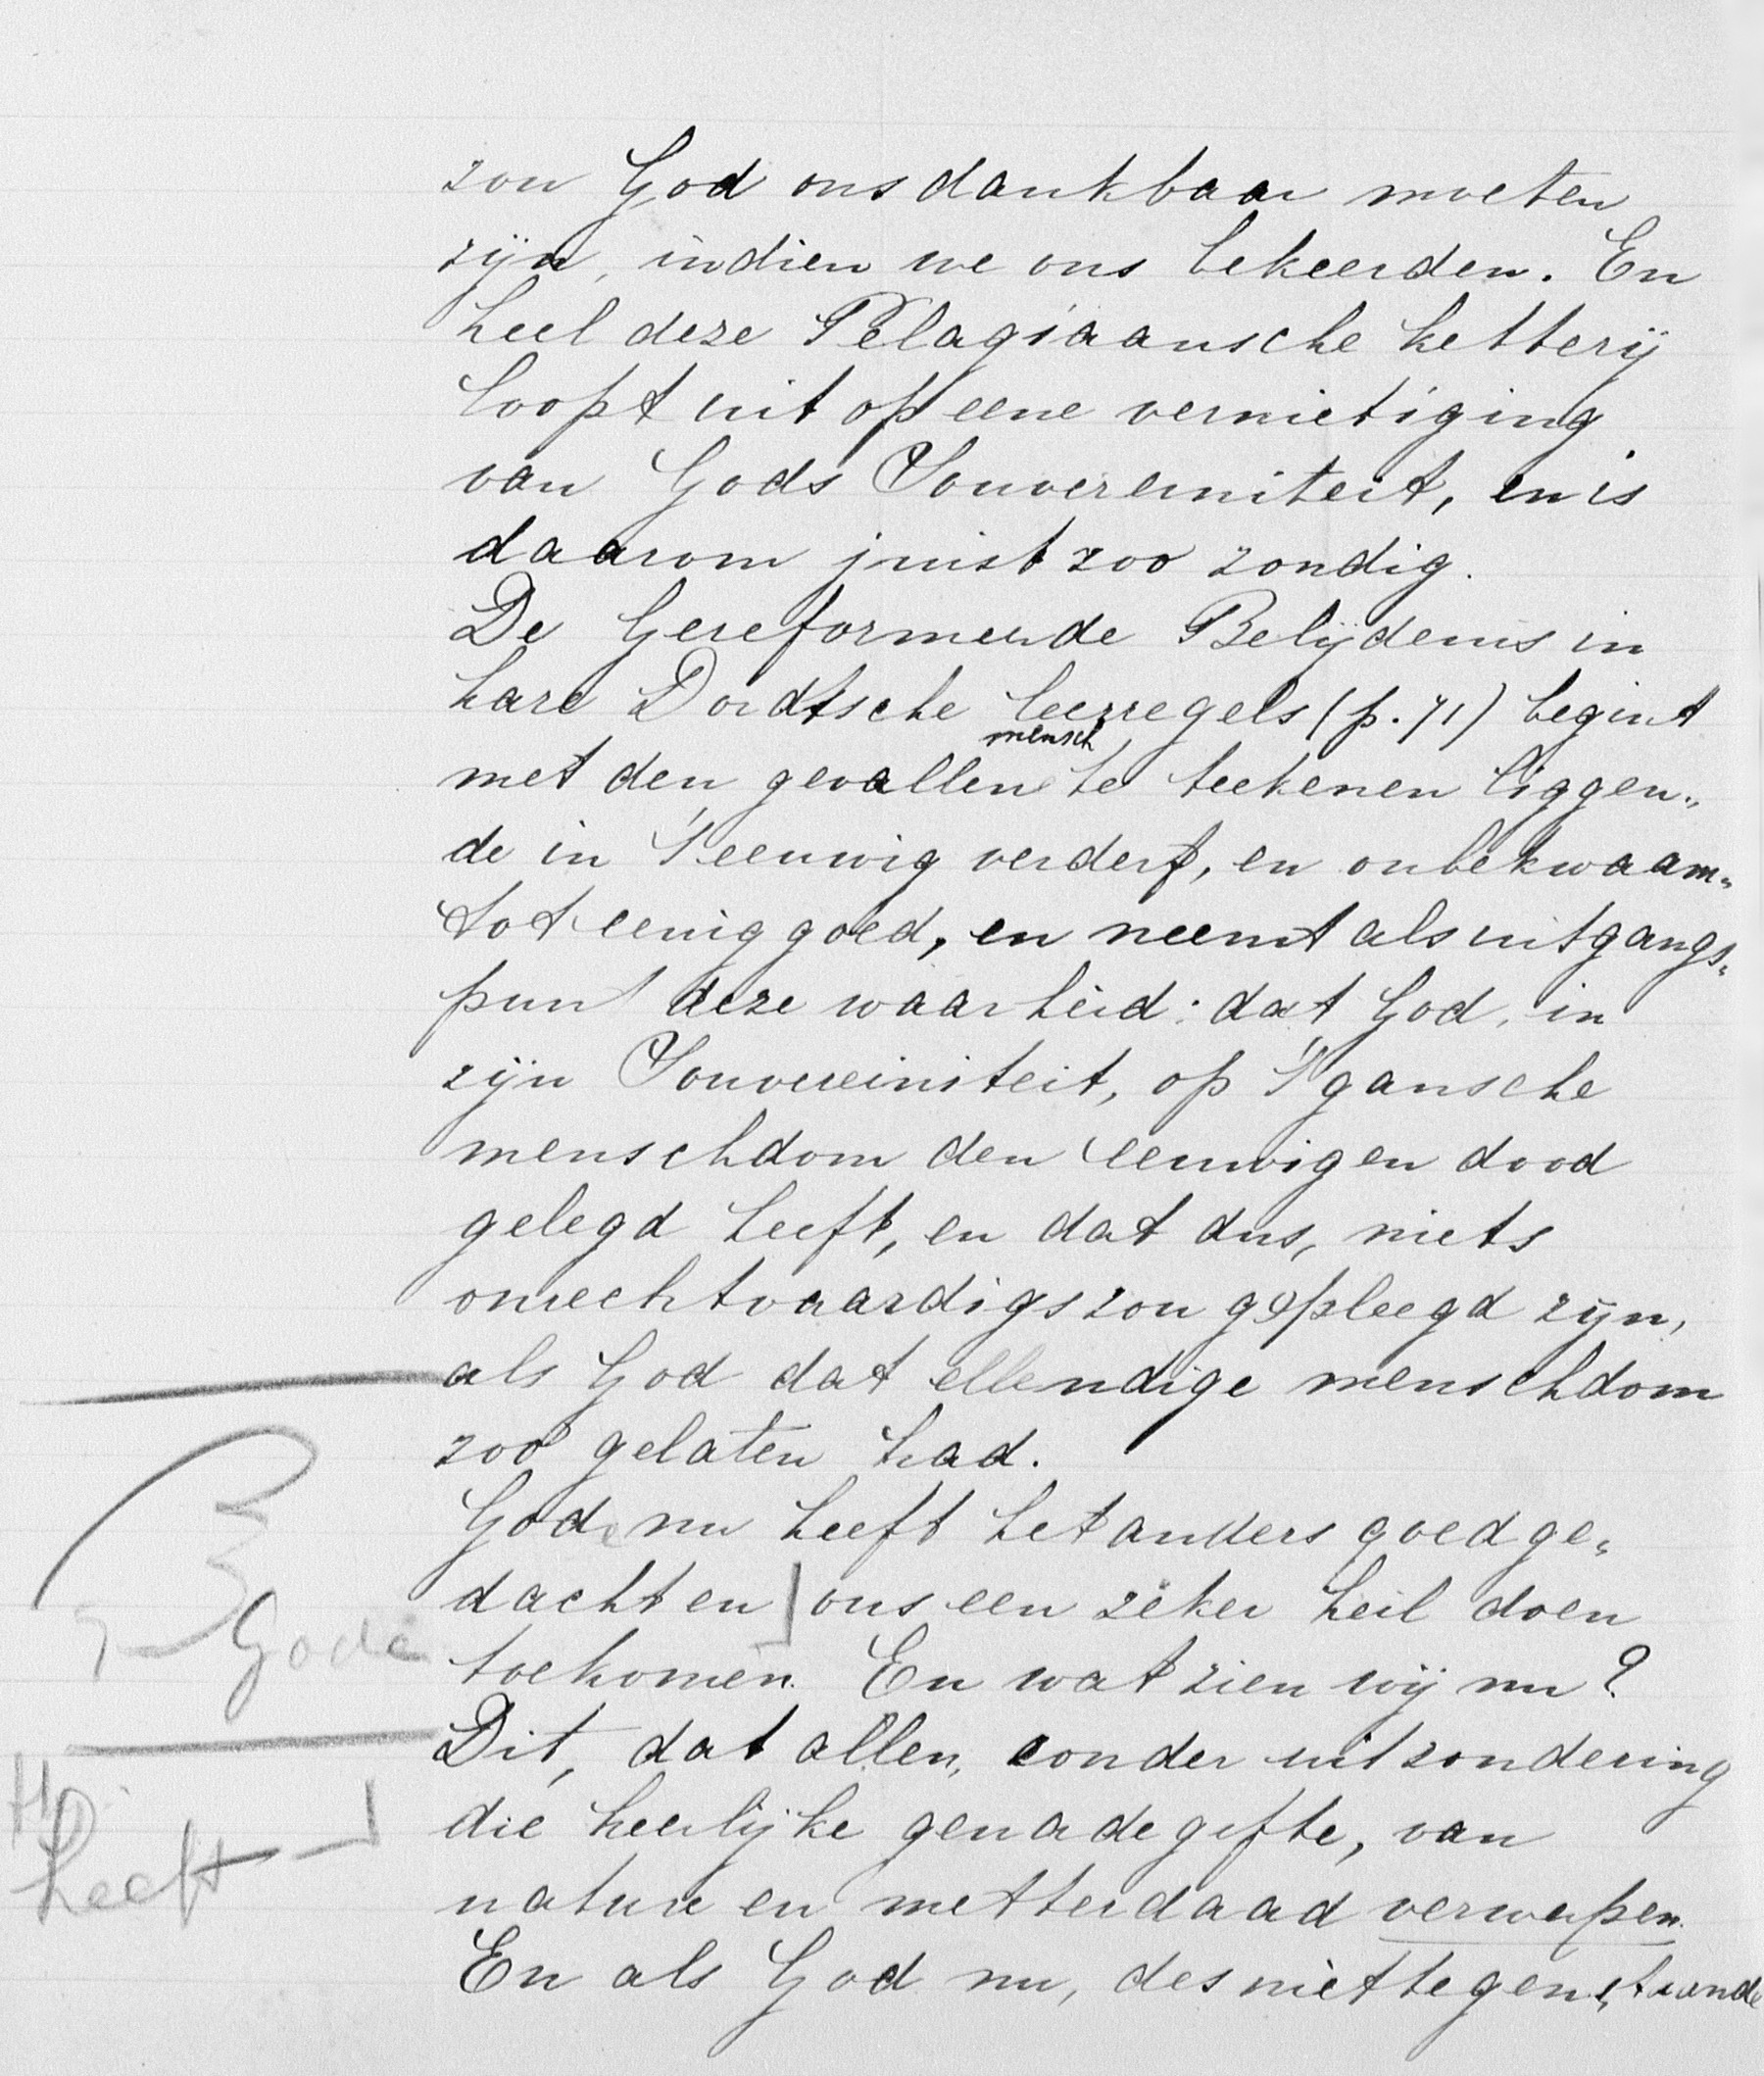 zou God ons dankbaar moeten
zijn, indien we ons bekeerden. En
heel deze Pelagiaansche ketterij
loopt uit op eene vernietiging
van Gods Souvereiniteit, en is
daarom juist zoo zondig.
De Gereformeerde Belijdenis in
hare Dordtsche leerregels (p. 71) begint
mensch
met den gevallen te teekenen liggen„
de in 't eeuwig verderf, en onbekwaam„
tot eenig goed, en neemt als uitgangs„
punt deze waarheid: dat God, in
zijn Souvereiniteit, op 't gansche
menschdom den eeuwigen dood
gelegd heeft, en dat dus, niets
onrechtvaardigs zou gepleegd zijn,
als God dat ellendige menschdom
zoo gelaten had.
God nu heeft het anders goedge„
dacht en ons een zeker heil doen
Gode
toekomen. En wat zien wij nu?
Dit, dat allen, zonder uitzondering
die heerlijke genadegifte, van
heeft
nature en metterdaad verwerpen.
En als God nu, desniettegenstaande